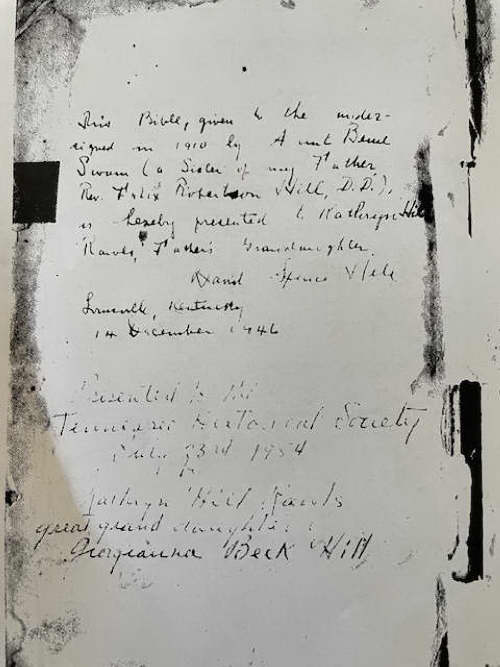 This Bible, given to the under-
signed in 1910 by Aunt
Swann (a Sister of my Father
Rev. Felix Robertson Hill, D.D.),
is hereby presented to Kathryn Hill
Rawls, Father's Granddaughter.
Hill
Louisville, Kentucky
14 December 1946
Presented to the
Tennessee Historical Society
July 23rd 1954
Kathryn Hill Rawls
great grand daughter
Georgianna Beck Hill